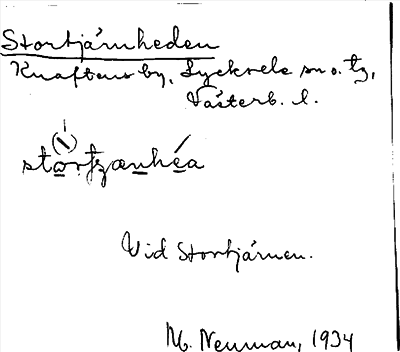 Stortjärnheden
Knaftens by, Lycksele sn o. tg,
Västerb. l.
Vid Stortjärnen.
M. Neuman, 1934